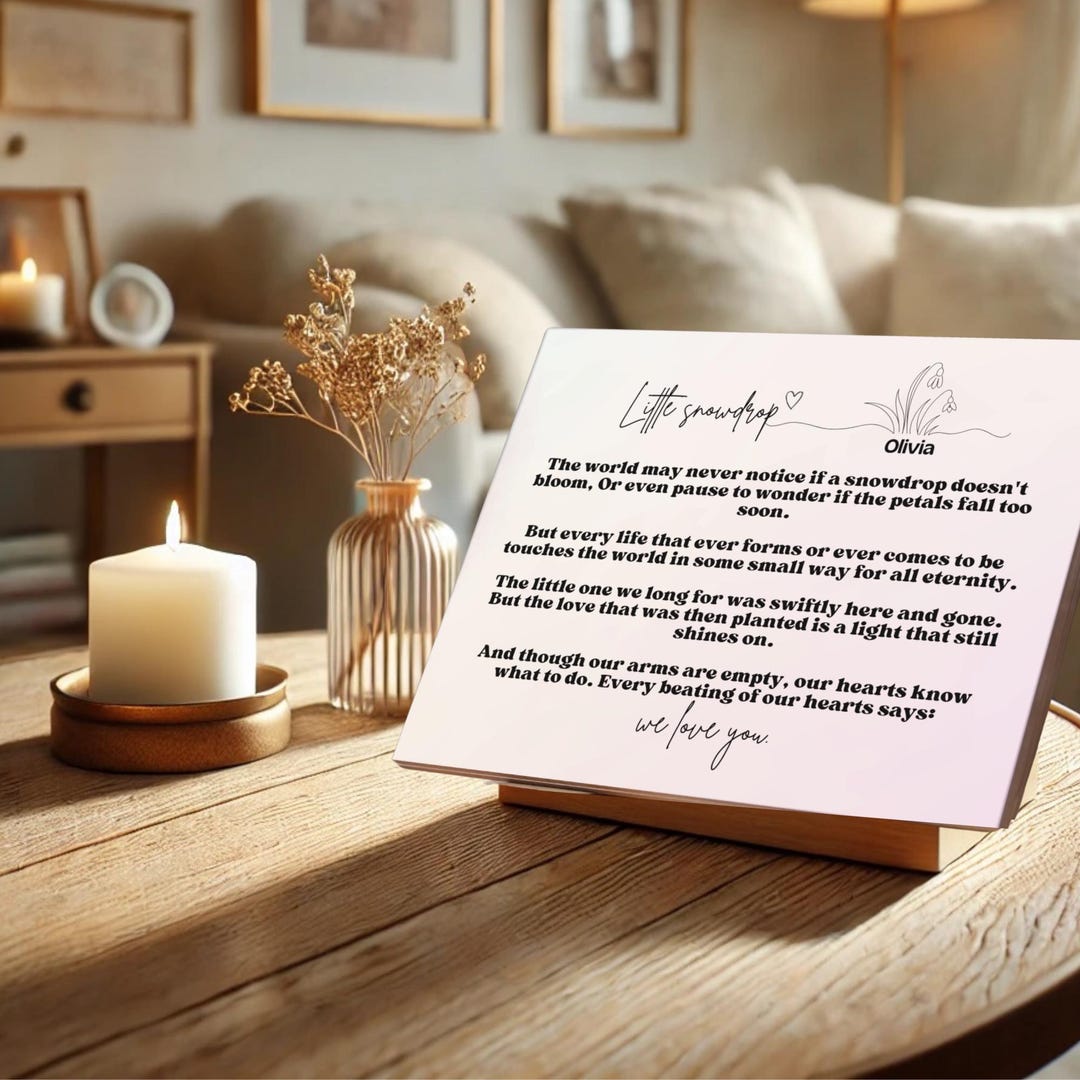 Little snowdrop
Olivia
The world may never notice if a snowdrop doesn't
bloom, Or even pause to wonder if the petals fall too
soon.
But every life that ever forms or ever comes to be
touches the world in some small way for all eternity.
The little one we long for was swiftly here and gone.
But the love that was then planted is a light that still
shines on.
And though our arms are empty, our hearts know
what to do. Every beating of our hearts says:
we love you.